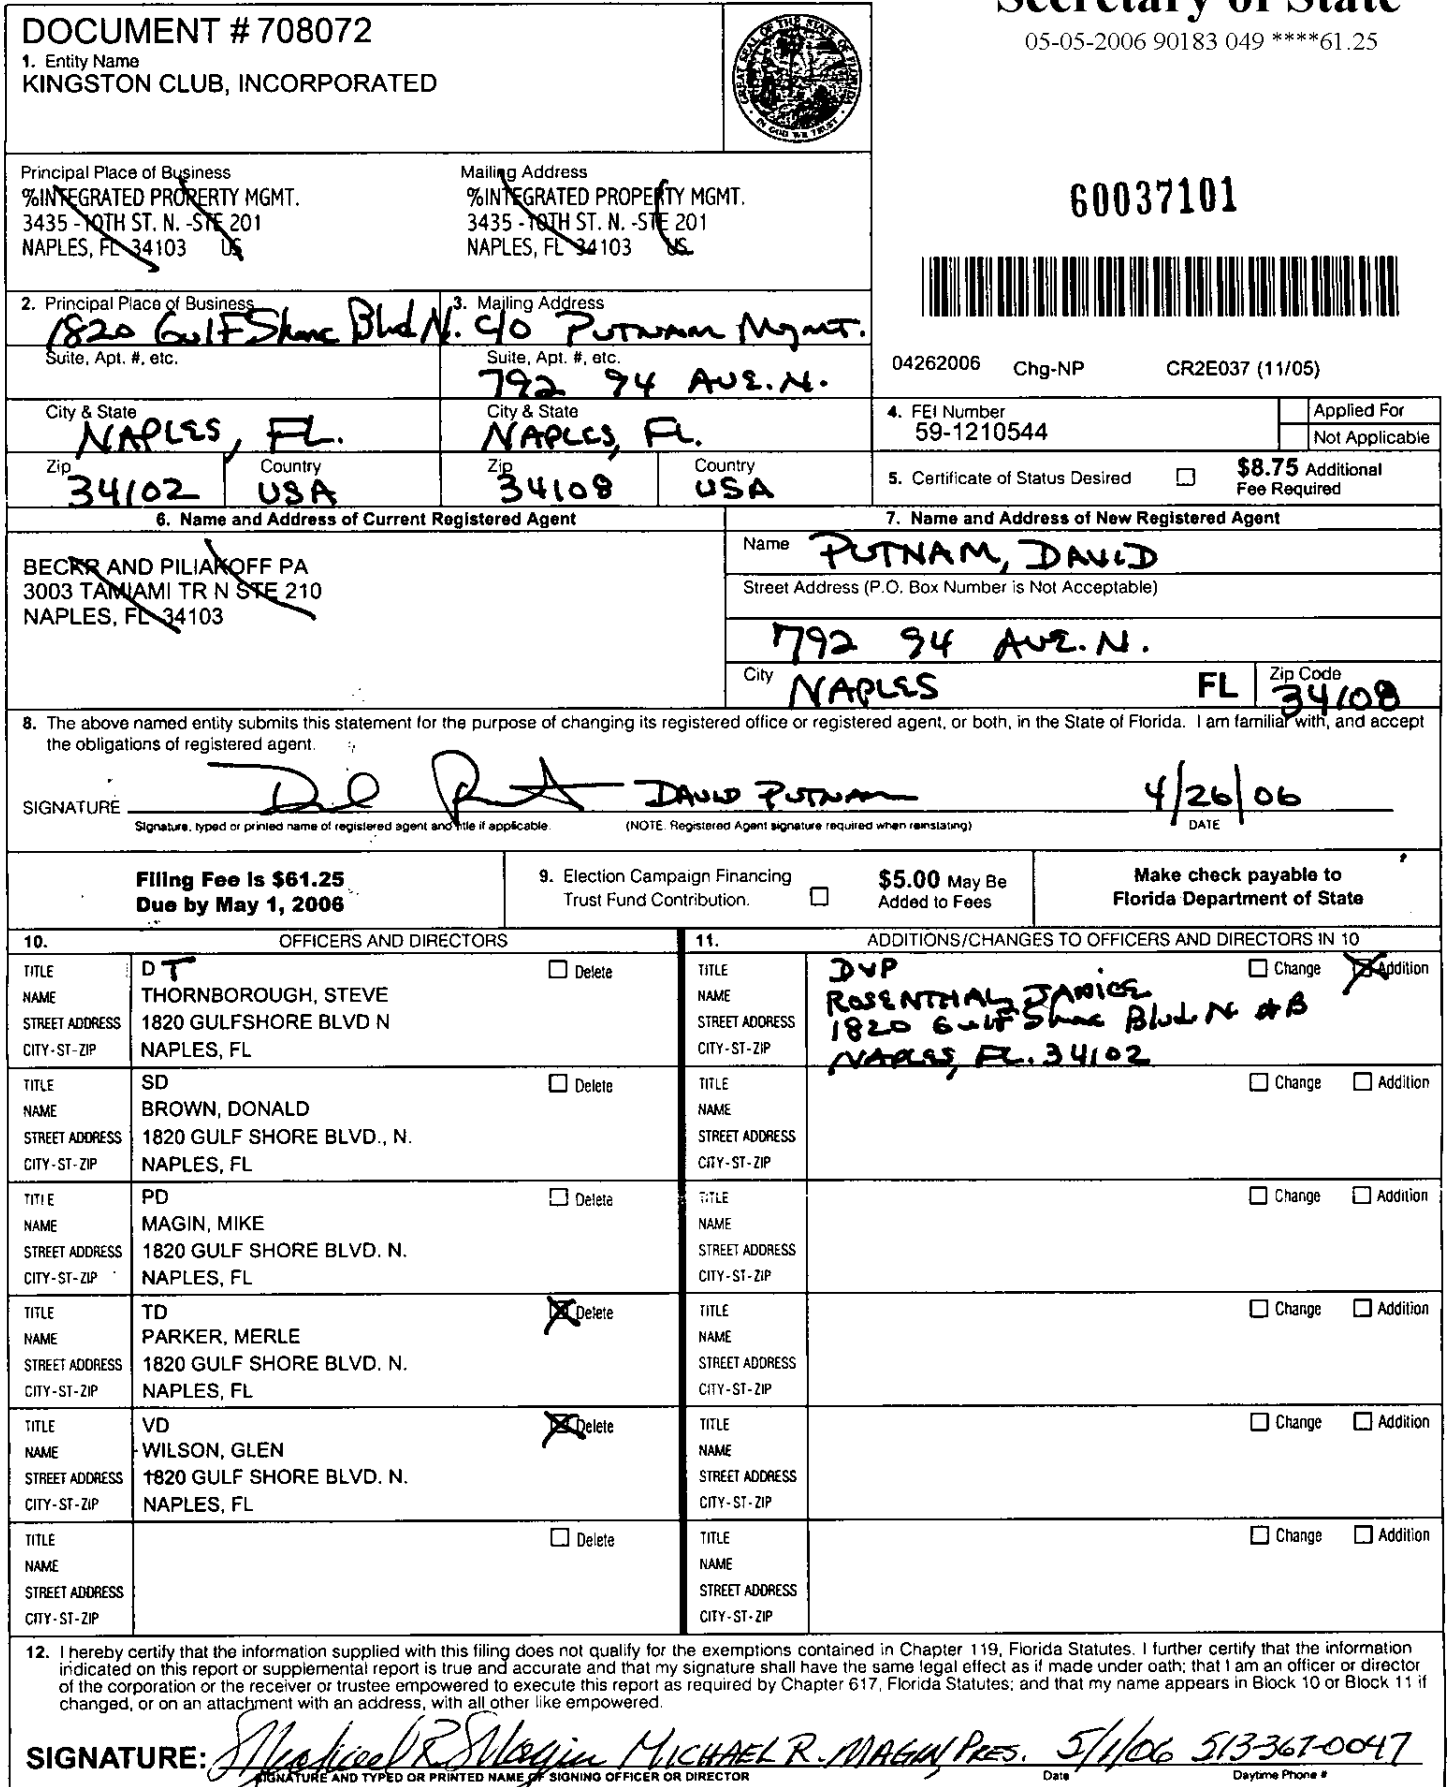 Secretary of State
05-05-2006 90183 049 ****61.25
DOCUMENT # 708072
1. Entity Name
KINGSTON CLUB, INCORPORATED
GREAT SEAL OF THE STATE OF FLORIDA
IN GOD WE TRUST
Principal Place of Business
%INTEGRATED PROPERTY MGMT.
3435 -10TH ST. N. -STE 201
NAPLES, FL 34103 US
Mailing Address
%INTEGRATED PROPERTY MGMT.
3435 -10TH ST. N. -STE 201
NAPLES, FL 34103 US
60037101
2. Principal Place of Business
1820 Gulf Shore Blvd N.
3. Mailing Address
C/O PUTNAM MGMT.
Suite, Apt. #, etc.
Suite, Apt. #, etc.
792 94 AVE. N.
04262006 Chg-NP CR2E037 (11/05)
City & State
NAPLES, FL.
City & State
NAPLES, FL.
Zip
34102
Country
USA
Zip
34108
Country
USA
4. FEI Number
59-1210544
Applied For
Not Applicable
5. Certificate of Status Desired
$8.75 Additional
Fee Required
6. Name and Address of Current Registered Agent
BECKR AND PILIAKOFF PA
3003 TAMIAMI TR N STE 210
NAPLES, FL 34103
7. Name and Address of New Registered Agent
Name PUTNAM, DAVID
Street Address (P.O. Box Number is Not Acceptable)
792 94 AVE. N.
City NAPLES FL Zip Code 34108
8. The above named entity submits this statement for the purpose of changing its registered office or registered agent, or both, in the State of Florida. I am familiar with, and accept
the obligations of registered agent.
SIGNATURE David Putnam DAVID PUTNAM 4/26/06
Signature, typed or printed name of registered agent and title if applicable. (NOTE: Registered Agent signature required when reinstating) DATE
Filing Fee is $61.25
Due by May 1, 2006
9. Election Campaign Financing
Trust Fund Contribution.
$5.00 May Be
Added to Fees
Make check payable to
Florida Department of State
10. OFFICERS AND DIRECTORS
TITLE DT Delete
NAME THORNBOROUGH, STEVE
STREET ADDRESS 1820 GULFSHORE BLVD N
CITY-ST-ZIP NAPLES, FL
TITLE SD Delete
NAME BROWN, DONALD
STREET ADDRESS 1820 GULF SHORE BLVD., N.
CITY-ST-ZIP NAPLES, FL
TITLE PD Delete
NAME MAGIN, MIKE
STREET ADDRESS 1820 GULF SHORE BLVD. N.
CITY-ST-ZIP NAPLES, FL
TITLE TD Delete
NAME PARKER, MERLE
STREET ADDRESS 1820 GULF SHORE BLVD. N.
CITY-ST-ZIP NAPLES, FL
TITLE VD Delete
NAME WILSON, GLEN
STREET ADDRESS 1820 GULF SHORE BLVD. N.
CITY-ST-ZIP NAPLES, FL
TITLE Delete
NAME
STREET ADDRESS
CITY-ST-ZIP
11. ADDITIONS/CHANGES TO OFFICERS AND DIRECTORS IN 10
TITLE DVP Change Addition
NAME ROSENTHAL, JANICE
STREET ADDRESS 1820 Gulf Shore Blvd N #B
CITY-ST-ZIP NAPLES, FL. 34102
TITLE Change Addition
NAME
STREET ADDRESS
CITY-ST-ZIP
TITLE Change Addition
NAME
STREET ADDRESS
CITY-ST-ZIP
TITLE Change Addition
NAME
STREET ADDRESS
CITY-ST-ZIP
TITLE Change Addition
NAME
STREET ADDRESS
CITY-ST-ZIP
TITLE Change Addition
NAME
STREET ADDRESS
CITY-ST-ZIP
12. I hereby certify that the information supplied with this filing does not qualify for the exemptions contained in Chapter 119, Florida Statutes. I further certify that the information
indicated on this report or supplemental report is true and accurate and that my signature shall have the same legal effect as if made under oath; that I am an officer or director
of the corporation or the receiver or trustee empowered to execute this report as required by Chapter 617, Florida Statutes; and that my name appears in Block 10 or Block 11 if
changed, or on an attachment with an address, with all other like empowered.
SIGNATURE: Michael R Magin MICHAEL R. MAGIN, PRES. 5/1/06 513-367-0047
SIGNATURE AND TYPED OR PRINTED NAME OF SIGNING OFFICER OR DIRECTOR Date Daytime Phone #